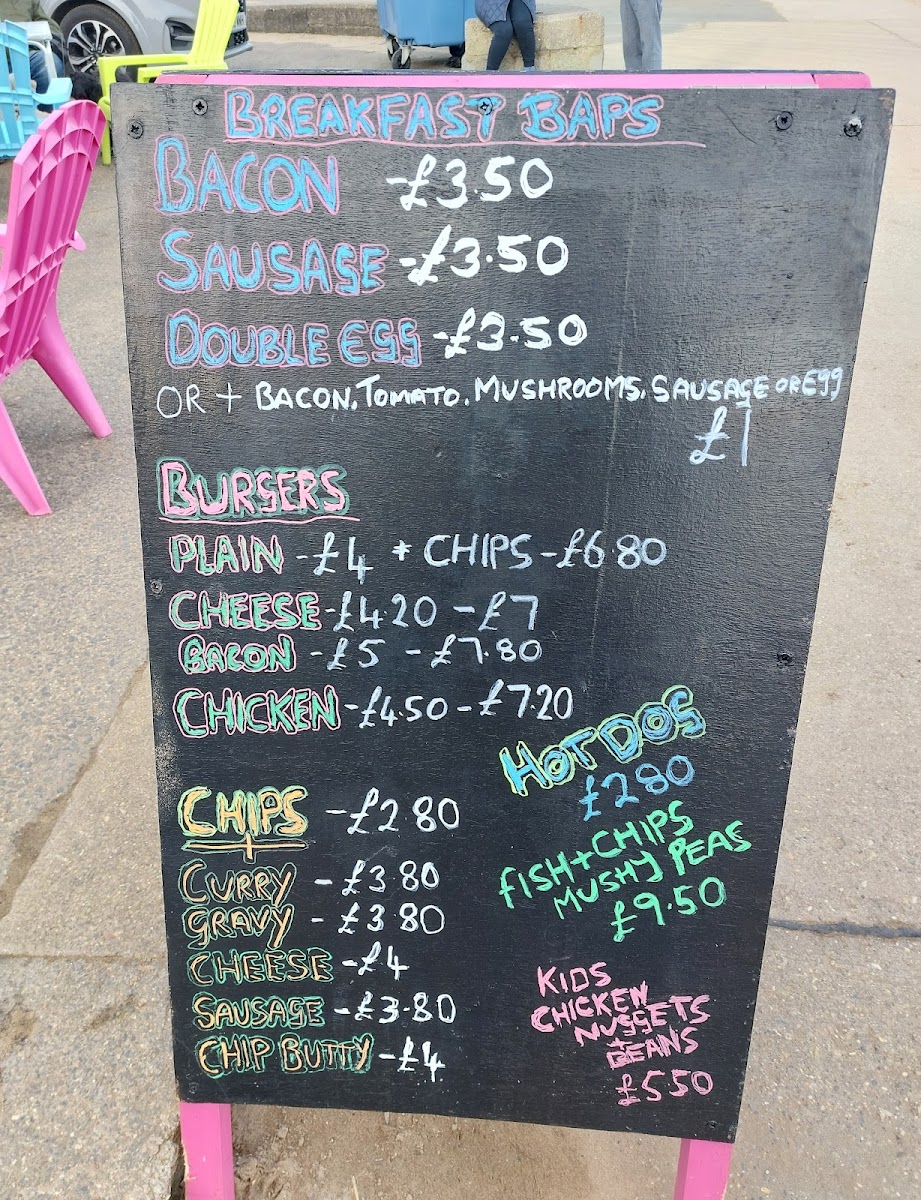 BREAKFAST BAPS
BACON -£3.50
SAUSAGE -£3.50
DOUBLE EGG -£3.50
OR + BACON. TOMATO. MUSHROOMS. SAUSAGE OR EGG
£1
BURGERS
PLAIN -£4 + CHIPS -£6.80
CHEESE -£4.20 -£7
BACON -£5 -£7.80
CHICKEN -£4.50 -£7.20
HOT DOG
£2.80
FISH + CHIPS
MUSHY PEAS
£9.50
CHIPS -£2.80
+
CURRY -£3.80
GRAVY -£3.80
CHEESE -£4
SAUSAGE -£3.80
CHIP BUTTY -£4
KIDS
CHICKEN
NUGGETS
+
BEANS
£5.50